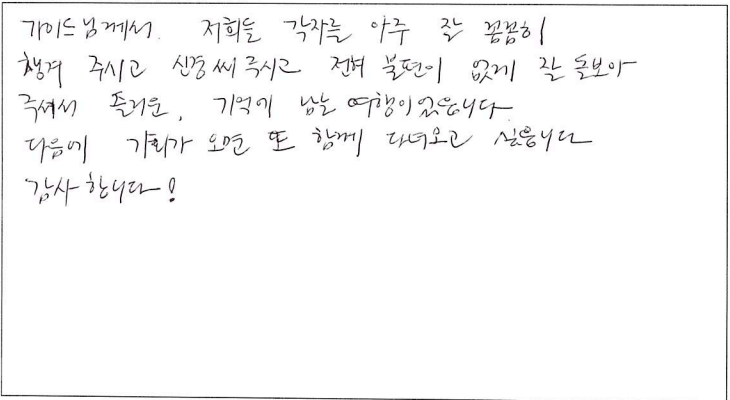 가이드님께서. 저희들 각자를 아주 잘 꼼꼼히
챙겨 주시고 신경써주시고 전혀 불편이 없게 잘 돌보아
주셔서 즐거운, 기억에 남는 여행이었읍니다
다음에 기회가 오면 또 함께 다녀오고 싶읍니다
감사합니다!